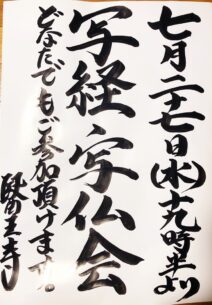 七月二十七日(水)十九時半より
写経・写仏会
どなたでもご参加頂けます。
醫王寺